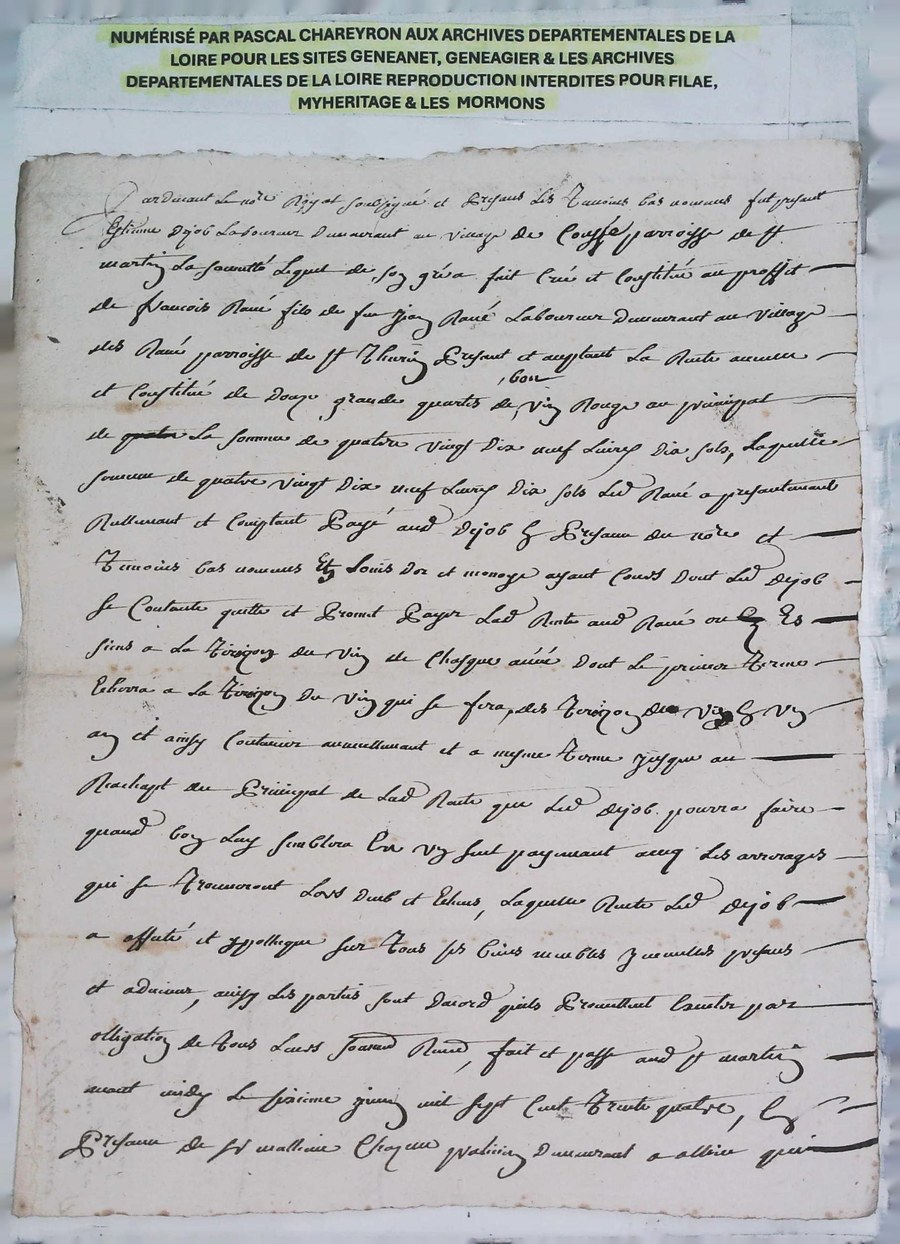 NUMÉRISÉ PAR PASCAL CHAREYRON AUX ARCHIVES DEPARTEMENTALES DE LA
LOIRE POUR LES SITES GENEANET, GENEAGIER & LES ARCHIVES
DEPARTEMENTALES DE LA LOIRE REPRODUCTION INTERDITES POUR FILAE,
MYHERITAGE & LES MORMONS
Pardevant Le no.re Royal soussigné et presans Les Temoins bas nommes fut present
Estienne Dejob Laboureur Demeurant au village de Cousse parroisse de St
martin La sauveté Lequel de son gré a fait Créé et Constitué au proffit
de francois Ravé fils de feu jean Ravé Laboureur Demeurant au village
des Ravé parroisse de St Thurin Presant et aceptant La Rente annuelle
et Constitué de Douze grande quarts de bon vin Rouge au principal
de La somme de quatre vingt Dix neuf Livres Dix sols, Laquelle
somme de quatre vingt Dix neuf Livres Dix sols Led Ravé a presantemant
Reellemant et Comptant Payé aud Dejob En Presance du no.re et
Temoins bas nommes En Louis Dor et monoye ayant Cours Dont Led Dejob
se Contante quitte et Promet Payer Lad Rente aud Ravé ou Es
siens a La Tirezon du vin de Chasque année Dont Le premier Terme
Echerra a La Tirezon Du vin qui se fera des Tirezon du vin En un
an et ainsy Continuer annuellemant et a mesme Terme jusque au
Reachapt du Principal de Lad Rente que Led Dejob pourra faire
quand bon Luy semblera En un seul payemant aveq Les arrerages
qui se Trouveront Lors Deub et Echeus, Laquelle Rente Led Dejob
a affecté et ypotheque sur Tous ses biens meubles ymmeubles presans
et advenir, ainsy Les parties sont Dacord quils Promettent Exécuter par
olligation de Tous Leurs Renon, fait et passé aud St martin
avant midy Le sixieme juin mil sept Cent Trente quatre, En
Presance de sr mathieu praticien Demeurant a